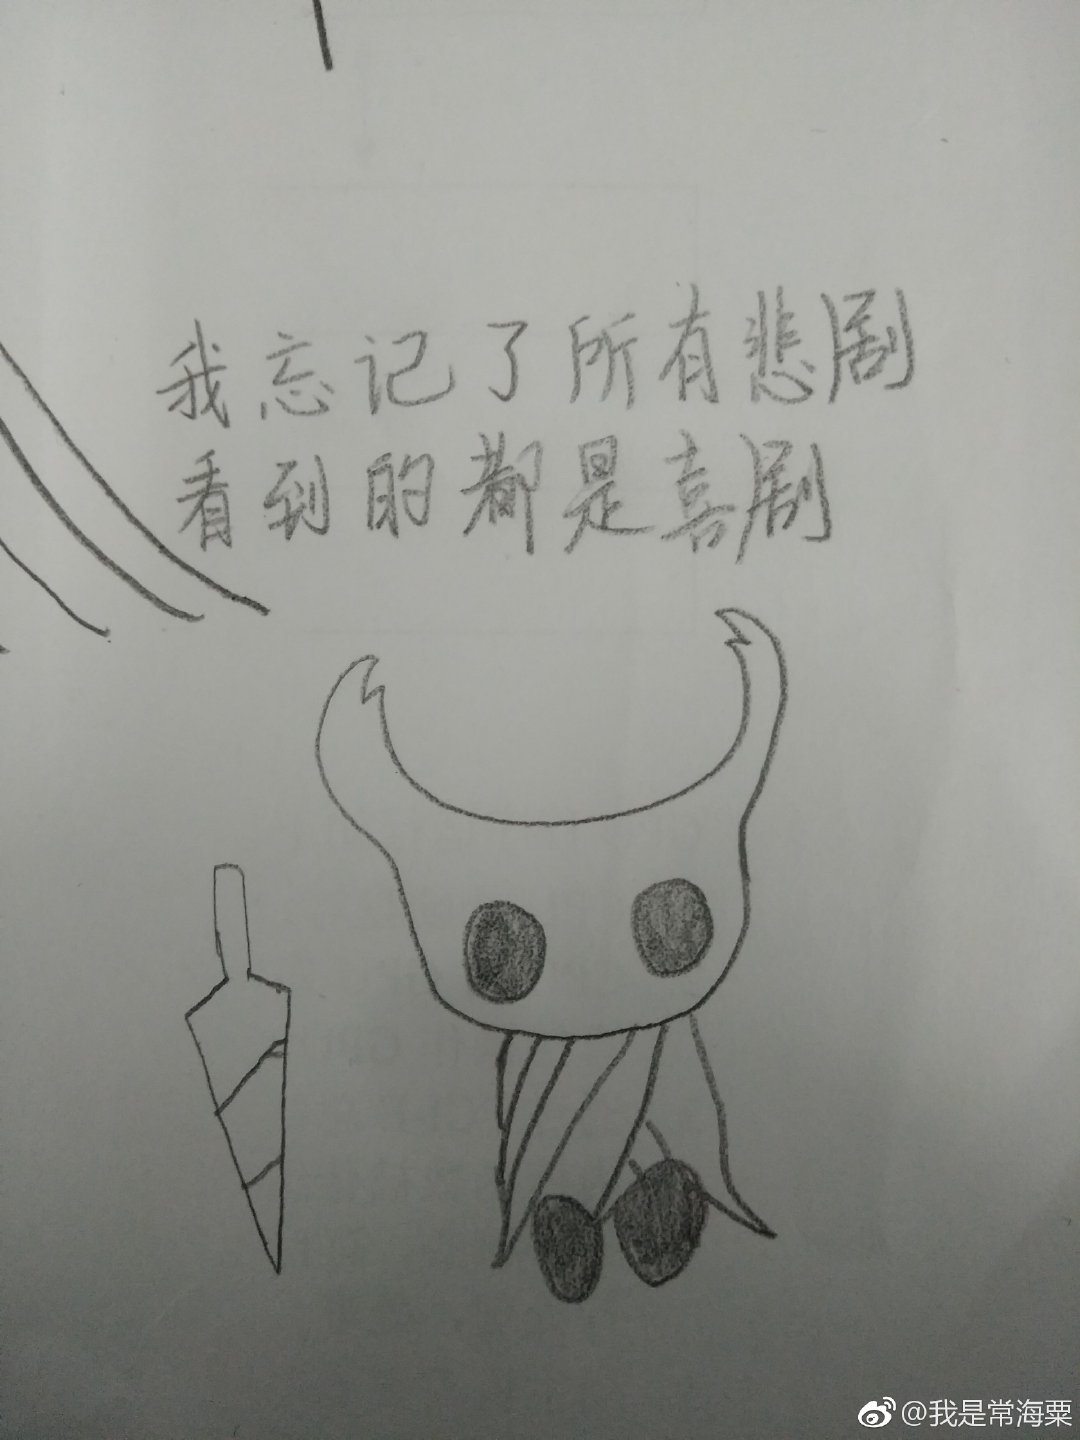 我忘记了所有悲剧
看到的都是喜剧
@我是常海粟